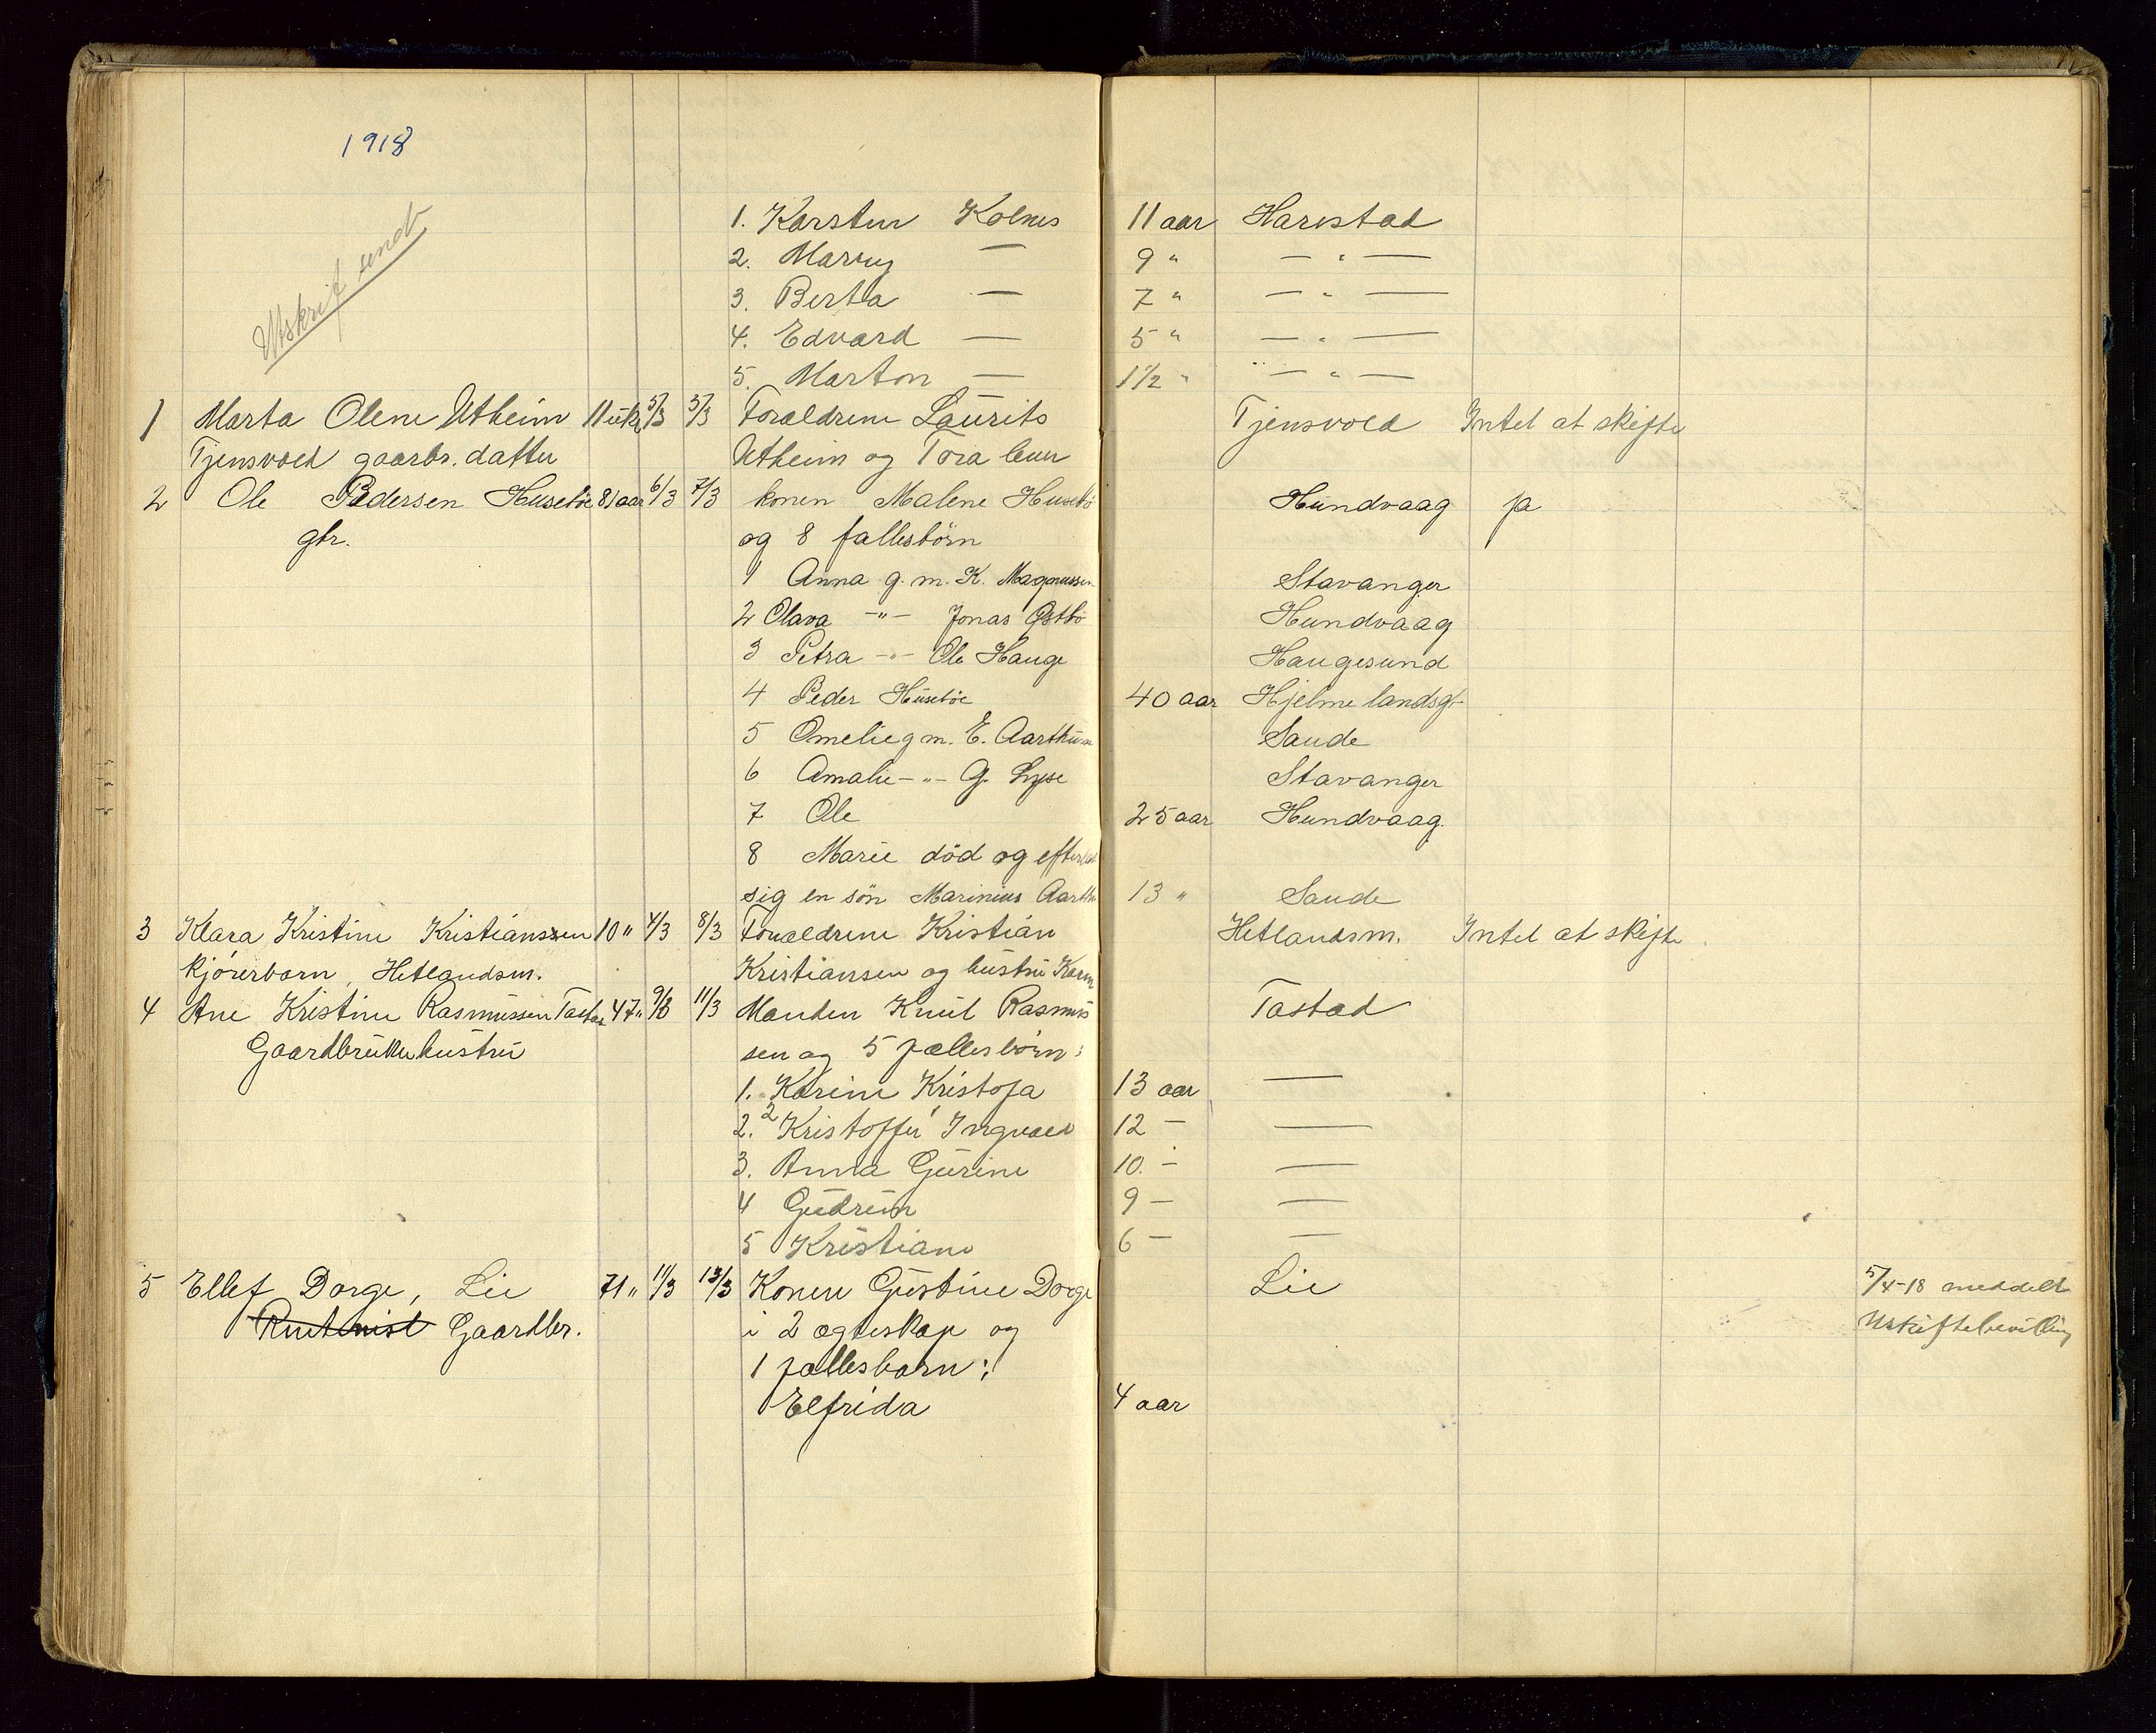 1918
Utskrift sendt
1. Karsten Kolnes 11 aar Harestad
2. Marry — 9 " — " —
3. Berta — 7 " — " —
4. Edvard — 5 " — " —
5. Marton — 1½ " — " —
1 Marta Olene Utheim 11 uk. 5/3 5/3 Forældrene Laurits Tjensvold Intet at skifte
Tjensvold gaarbr. datter Utheim og Tora
2 Ole Pedersen Husebøe 81 aar 6/3 7/3 konen Malene Husebø Hundvaag ja
gbr. og 8 fællesbörn
1 Anna g. m. K. Magnussen Stavanger
2 Olava -"- Jonas Østbö Hundvaag
3 Petra -"- Ole Hauge Haugesund
4 Peder Husebøe 40 aar Hjelmelandsg
5 Omelie g m. E. Aarthun Sande
6 Amalie -"- G. Lyse Stavanger
7 Ole 25 aar Hundvaag.
8 Marie död og efterlod
sig en sön Marinius Aarthu 13 " Sande
3 Klara Kristine Kristianssen 10 " 4/3 8/3 Forældrene Kristian Hetlandsm. Intet at skifte
kjörerbarn, Hetlandsm. Kristiansen og hustru Karen
4 Ane Kristine Rasmussen Tastad 47 " 9/3 11/3 Manden Knut Rasmus Tastad
Gaardbruker hustru sen og 5 fællesbörn:
1. Karine Kristofa 13 aar —
2. 2 Kristoffer 1 Ingvald 12 — —
3. Anna Gurine 10. — —
4 Gudrun 9 — —
5 Kristiane 6 — —
5 Ellef Dorge, Lie 71 " 11/3 13/3 Konen Gustine Dorge Lie 5/4-18 meddelt
Rentenist Gaardbr. i 2 ægteskap og Uskiftebevilling
1 fællesbarn:
Elfrida 4 aar